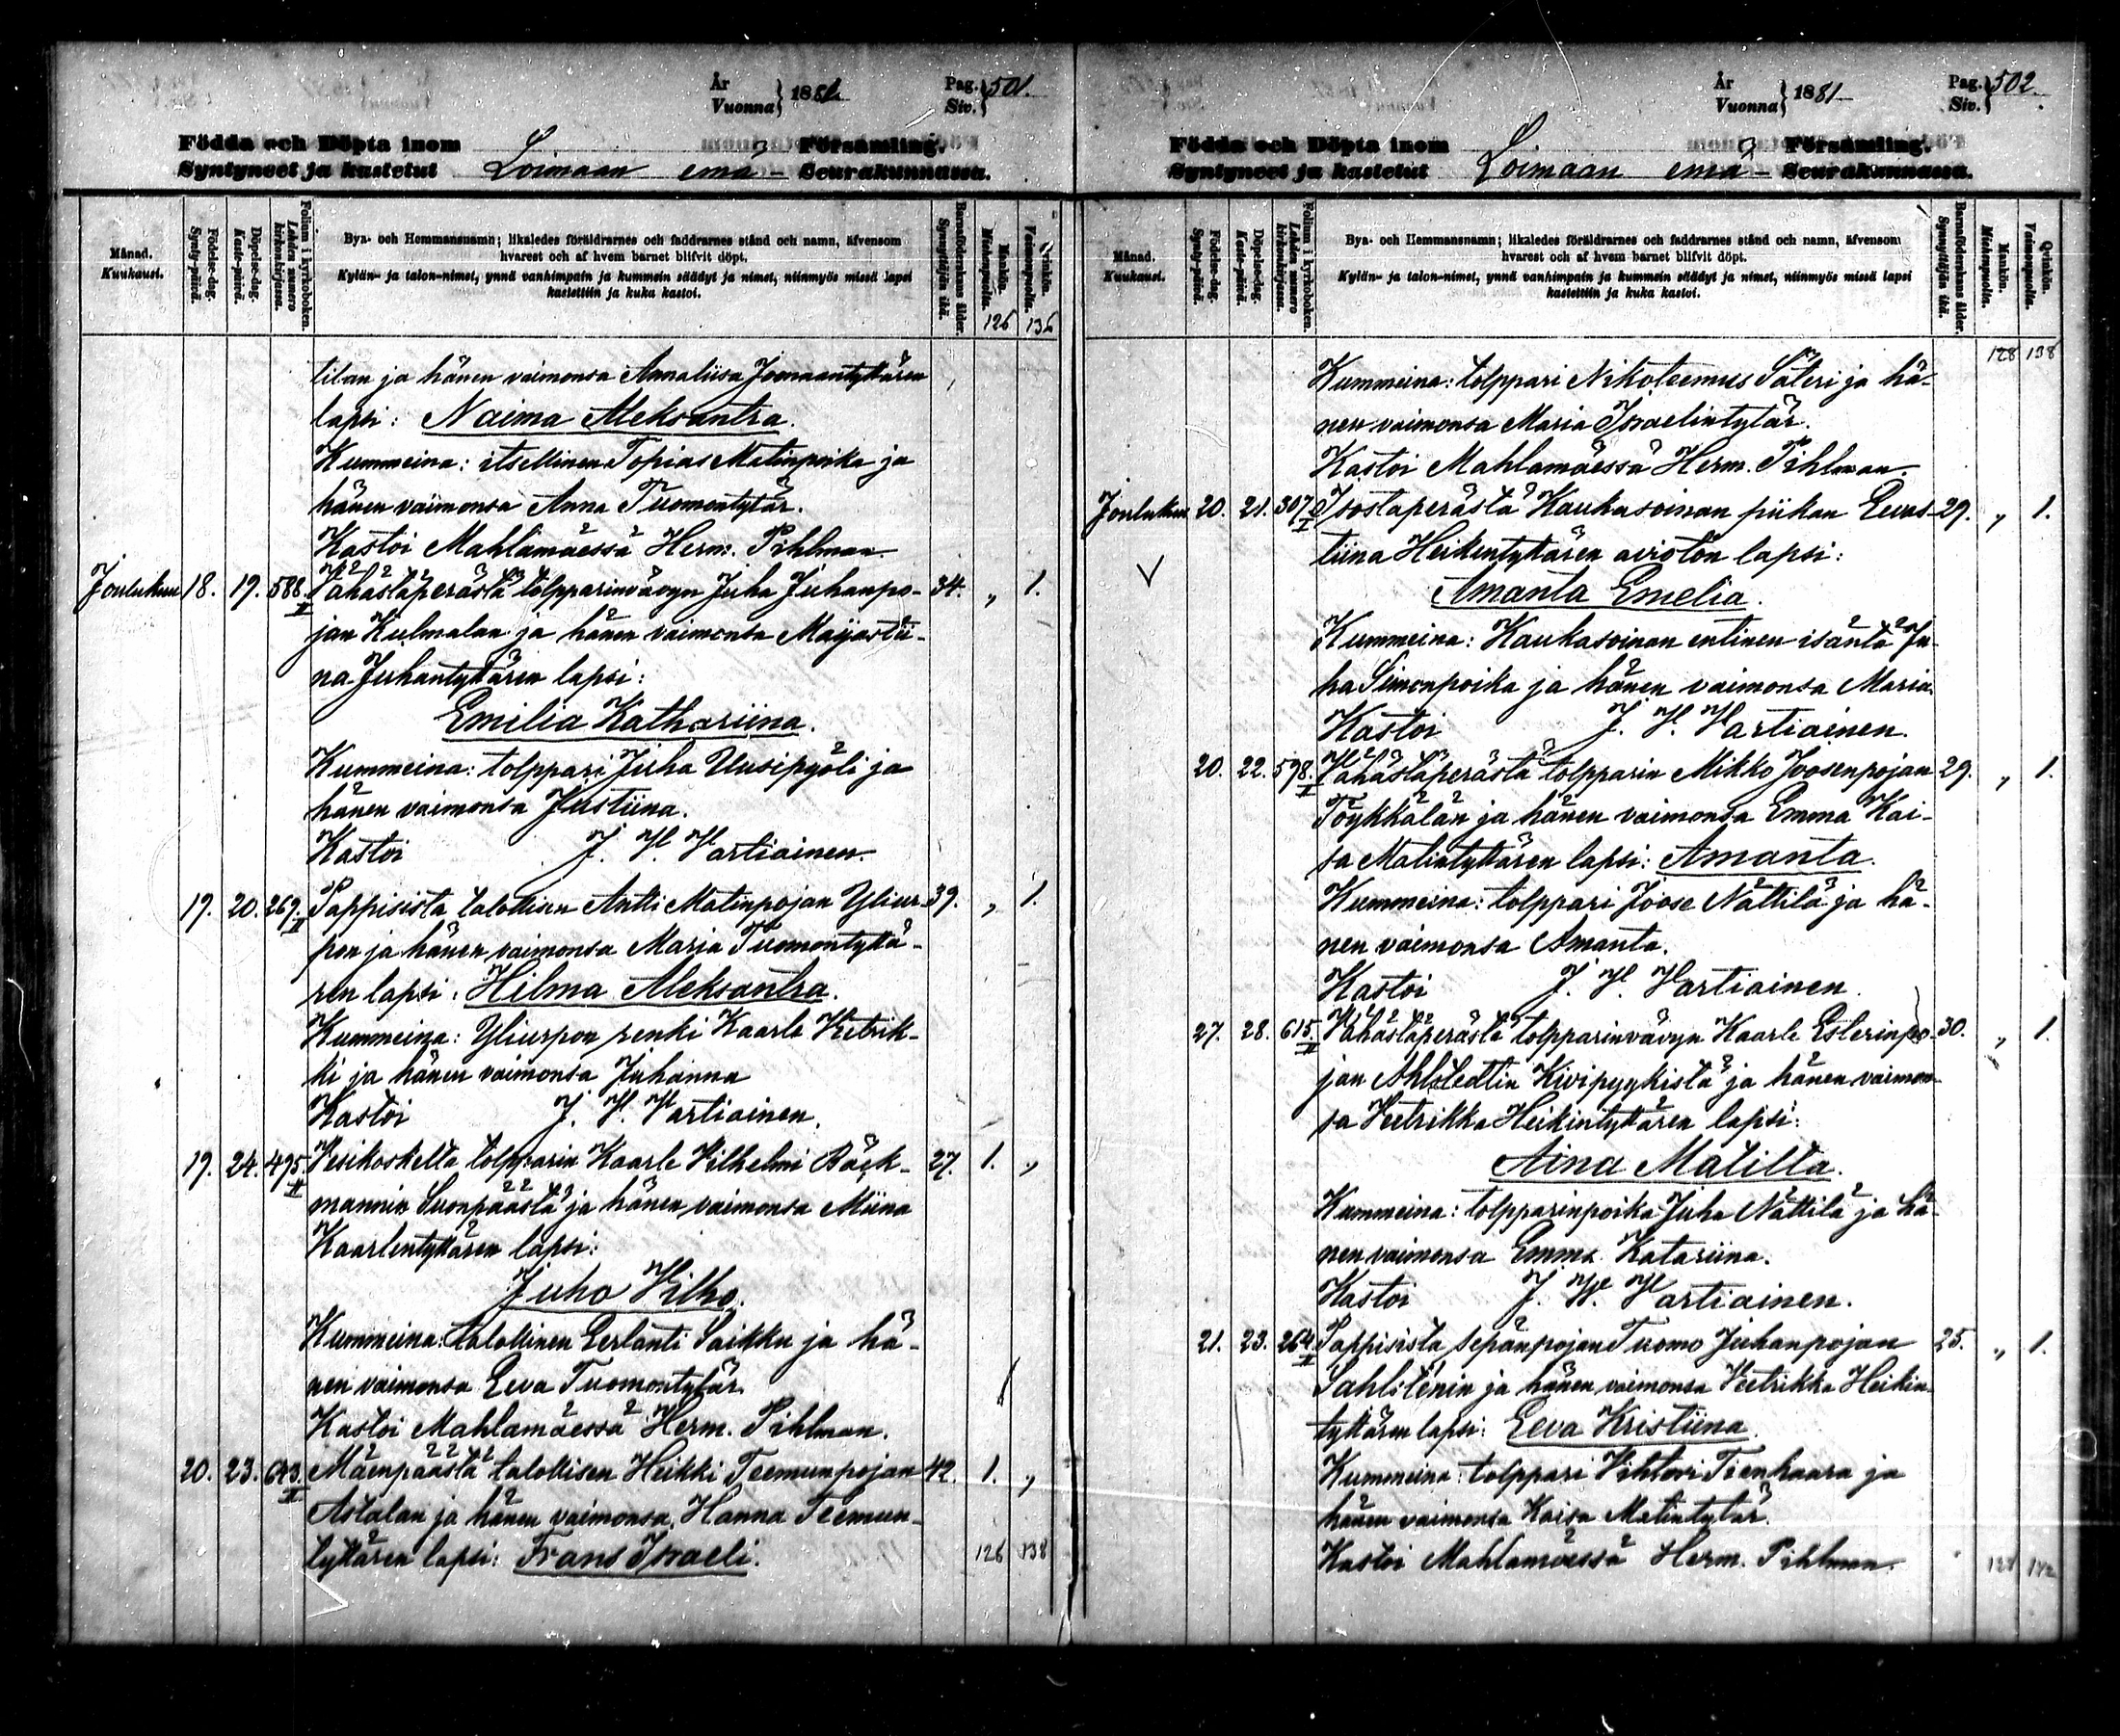 År
Vuonna } 1881.
Pag.
Siv. } 501.
Födda och Döpta inom
Syntyneet ja kastetut
Loimaan emä-
Församling.
Seurakunnassa.
Månad.
Kuukausi.
Födelse-dag.
Synty-päivä.
Döpelse-dag.
Kaste-päivä.
Folium i kyrkoboken.
Lehden numero kirkonkirjassa.
Bya- och Hemmansnamn; likaledes föräldrarnes och faddrarnes stånd och namn, äfvensom
hvarest och af hvem barnet blifvit döpt.
Kylän- ja talon-nimet, ynnä vanhimpain ja kummein säädyt ja nimet, niinmyös missä lapsi
kastettiin ja kuka kastoi.
Barnaföderskans ålder.
Synnyttäjän ikä.
Mankön.
Miehenpuolta.
Qvinkön.
Vaimonpuolta.
126 136
tilan ja hänen vaimonsa Annaliisa Joonaantyttären
lapsi: Naima Aleksantra.
Kummeina: itsellinen Topias Matinpoika ja
hänen vaimonsa Anna Tuomontytär.
Kastoi Mahlamäessä Herm. Pihlman
Joulukuu 18. 19. 588. II Vähästäperästä tolpparinvävyn Juha Juhanpo- 34. „ 1.
jan Kulmalan ja hänen vaimonsa Maijastii-
na Juhantyttären lapsi:
Emilia Kathariina.
Kummeina: tolppari Juha Uusipyöli ja
hänen vaimonsa Justiina.
Kastoi J. V. Vartiainen.
19. 20. 269. II Pappisista talollisen Antti Matinpojan Yliur- 39. „ 1.
pon ja hänen vaimonsa Maria Tuomontyttä-
ren lapsi: Hilma Aleksantra.
Kummeina: Yliurpon renki Kaarle Vetrik-
ki ja hänen vaimonsa Juhanna
Kastoi J. V. Vartiainen.
19. 24. 495. II Vesikoskelta tolpparin Kaarle Vilhelmi Bäck- 27. 1. „
mannin Suonpäästä ja hänen vaimonsa Miina
Kaarlentyttären lapsi:
Juho Vilho.
Kummeina: talollinen Eerlanti Saikku ja hä-
nen vaimonsa Eeva Tuomontytär.
Kastoi Mahlamäessä Herm. Pihlman.
20. 23. 643. II Mäenpäästä talollisen Heikki Teemunpojan 42. 1. „
Astalan ja hänen vaimonsa Hanna Teemun-
tyttären lapsi: Frans Israeli.
126 138
År
Vuonna } 1881
Pag.
Siv. } 502.
Födda och Döpta inom
Syntyneet ja kastetut
Loimaan emä-
Församling.
Seurakunnassa.
Månad.
Kuukausi.
Födelse-dag.
Synty-päivä.
Döpelse-dag.
Kaste-päivä.
Folium i kyrkoboken.
Lehden numero kirkonkirjassa.
Bya- och Hemmansnamn; likaledes föräldrarnes och faddrarnes stånd och namn, äfvensom
hvarest och af hvem barnet blifvit döpt.
Kylän- ja talon-nimet, ynnä vanhimpain ja kummein säädyt ja nimet, niinmyös missä lapsi
kastettiin ja kuka kastoi.
Barnaföderskans ålder.
Synnyttäjän ikä.
Mankön.
Miehenpuolta.
Qvinkön.
Vaimonpuolta.
128 138
Kummeina: tolppari Nikoteemus Säteri ja hä-
nen vaimonsa Maria Israelintytär.
Kastoi Mahlamäessä Herm. Pihlman.
Joulukuu 20. 21. 307. I Isostaperästä Kaukasoinan piikan Eevas- 29. „ 1.
tiina Heikintyttären avioton lapsi:
Amanta Emelia.
Kummeina: Kaukasoinan entinen isäntä Ju-
ha Simonpoika ja hänen vaimonsa Maria
Kastoi J. V. Vartiainen.
20. 22. 598. II Vähästäperästä tolpparin Mikko Joosenpojan 29. „ 1.
Töykkälän ja hänen vaimonsa Emma Kai-
sa Matintyttären lapsi: Amanta.
Kummeina: tolppari Joose Nättilä ja hä-
nen vaimonsa Amanta.
Kastoi J. V. Vartiainen.
27. 28. 615. II Vähästäperästä tolpparinvävyn Kaarle Esterinpo- 30. „ 1.
jan Ahlstedtin Kivipyykistä ja hänen vaimon-
sa Veetrikka Heikintyttären lapsi:
Aina Matilta.
Kummeina: tolpparinpoika Juha Nättilä ja hä-
nen vaimonsa Emma Katariina.
Kastoi J. V. Vartiainen.
21. 23. 264. II Pappisista sepänpojan Tuomo Juhanpojan 25. „ 1.
Sahlsténin ja hänen vaimonsa Veetrikka Heikin-
tyttären lapsi: Eeva Kristiina.
Kummeina: tolppari Vihtori Tienhaara ja
hänen vaimonsa Kaisa Matintytär.
Kastoi Mahlamäessä Herm. Pihlman.
128 142